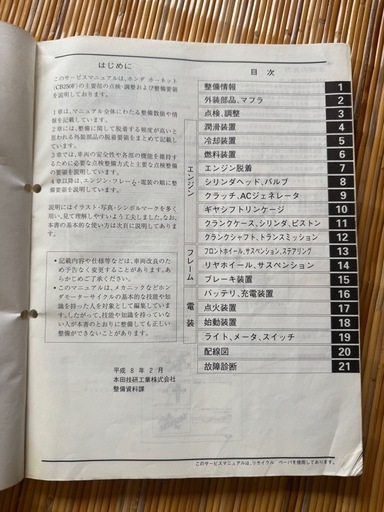 はじめに
このサービスマニュアルは、ホンダ ホーネット
(CB250F)の主要部の点検・調整および整備要領
を説明しております。
1章は、マニュアル全体にわたる整備数値や情
報を記載しています。
2章には、整備に関して脱着する頻度が高いと
思われる外装部品の脱着要領をまとめて記載し
ています。
3章では、車両の安全性や各部の機能を維持す
るために必要な点検整備方式と主要な点検整備
の要領を説明しています。
4章以降は、エンジン・フレーム・電装の順に整
備要領を説明しています。
説明にはイラスト・写真・シンボルマークを多く
用い、見て理解しやすいよう工夫しました。なお、
本書の基本的な使い方は次頁に説明してありま
す。
• 記載内容や仕様などは、車両改良のた
め予告なく変更することがあります。あ
らかじめご了承ください。
• このマニュアルは、メカニックなどホン
ダモーターサイクルの基本的な技能や知
識を持った人を対象として編集していま
す。したがって、技能や知識を持っていな
い人が本書のとおりに整備しても正しい
整備ができないことがあります。
平成 8 年 2 月
本田技研工業株式会社
整備資料課
目 次
整備情報 1
外装部品、マフラ 2
点検、調整 3
エンジン
潤滑装置 4
冷却装置 5
燃料装置 6
エンジン脱着 7
シリンダヘッド、バルブ 8
クラッチ、ACジェネレータ 9
ギヤシフトリンケージ 10
クランクケース、シリンダ、ピストン 11
クランクシャフト、トランスミッション 12
フレーム
フロントホイール、サスペンション、ステアリング 13
リヤホイール、サスペンション 14
ブレーキ装置 15
電装
バッテリ、充電装置 16
点火装置 17
始動装置 18
ライト、メータ、スイッチ 19
配線図 20
故障診断 21
このサービスマニュアルは、リサイクル ペーパを使用しております。